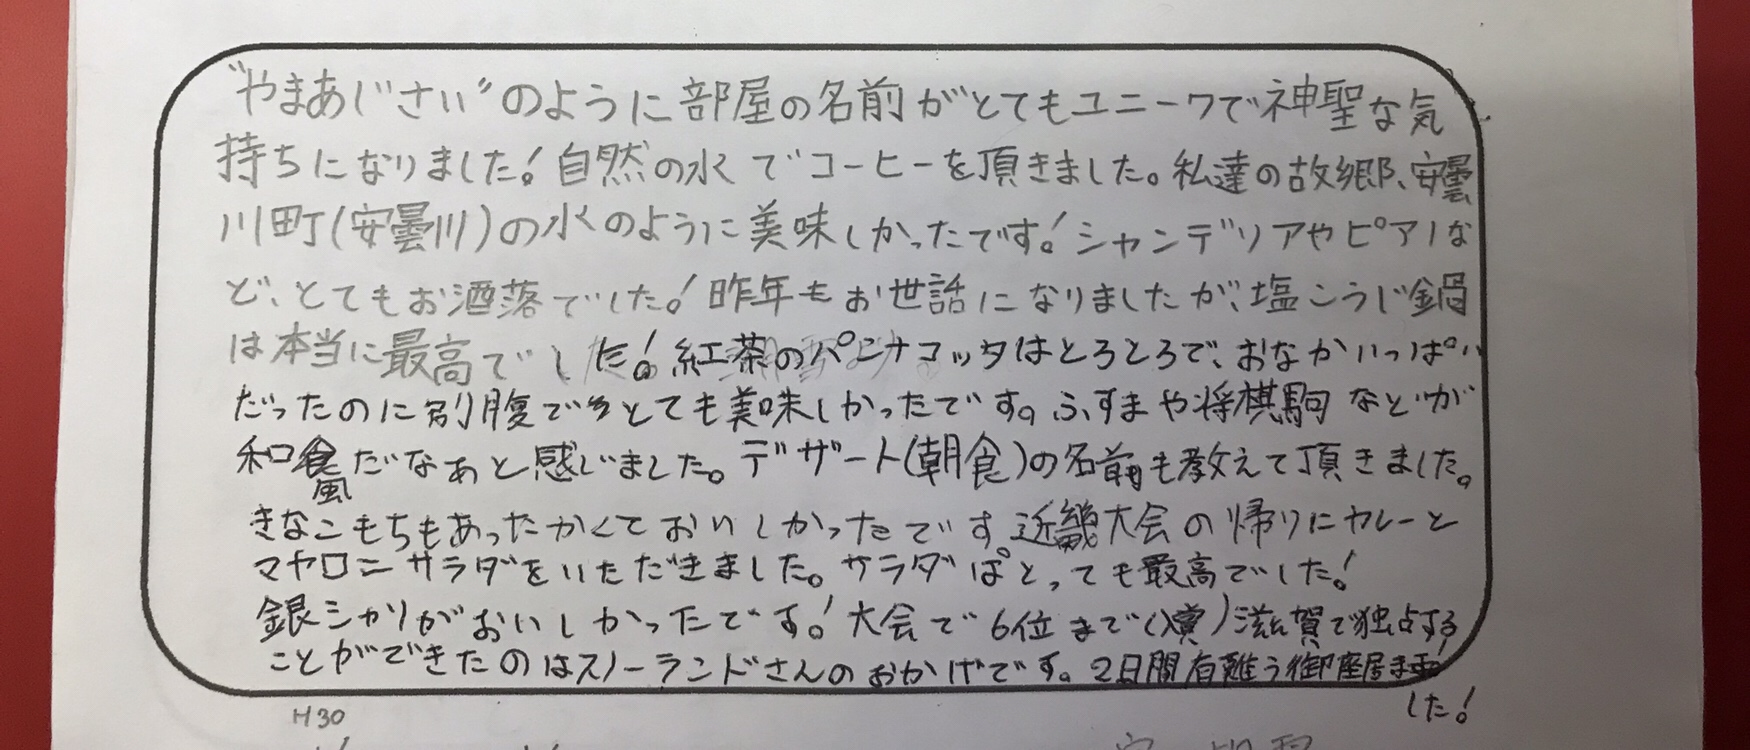 "やまあじさい"のように部屋の名前がとてもユニークで神聖な気
持ちになりました!自然の水でコーヒーを頂きました。私達の故郷、安曇
川町(安曇川)の水のように美味しかったです!シャンデリアやピアノな
ど、とてもお洒落でした!昨年もお世話になりましたが、塩こうじ鍋
は本当に最高でした!紅茶のパンナコッタはとろとろで、おなかいっぱい
だったのに別腹でとても美味しかったです。ふすまや将棋駒などが
和風だなぁと感じました。デザート(朝食)の名前も教えて頂きました。
きなこもちもあったかくておいしかったです近畿大会の帰りにカレーと
マカロニサラダをいただきました。サラダはとっても最高でした!
銀シャリがおいしかったです!大会で6位まで(入賞)滋賀で独占する
ことができたのはスノーランドさんのおかげです。2日間有難う御座居ま
した!
H30